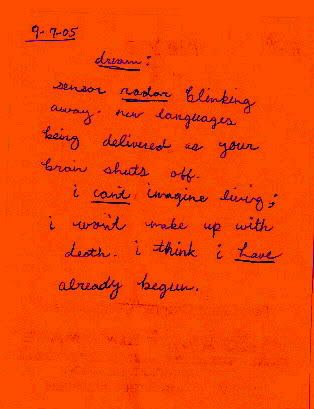 9-7-05
dream:
sensor radar blinking
away. new languages
being delivered as your
brain shuts off.
i can't imagine living;
i won't wake up with
death. i think i have
already begun.